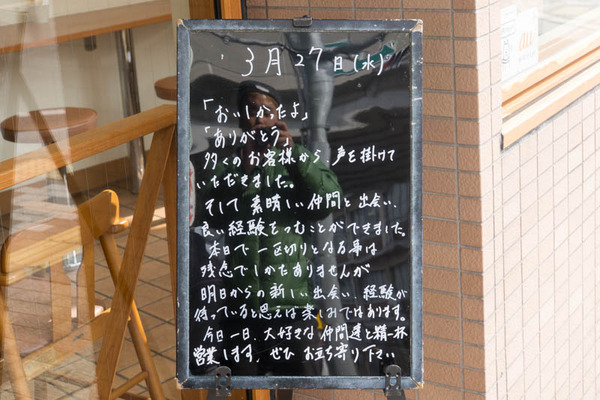 3月27日(水)
「おいしかったよ」
「ありがとう」
多くのお客様から、声を掛けて
いただきました。
そして素晴しい仲間と出会い、
良い経験をつむことができました。
本日で一区切りとなる事は
残念でしかたありませんが
明日からの新しい出会い、経験が
待っていると思えば楽しみではあります。
今日一日、大好きな仲間達と精一杯
営業します。ぜひお立ち寄り下さい